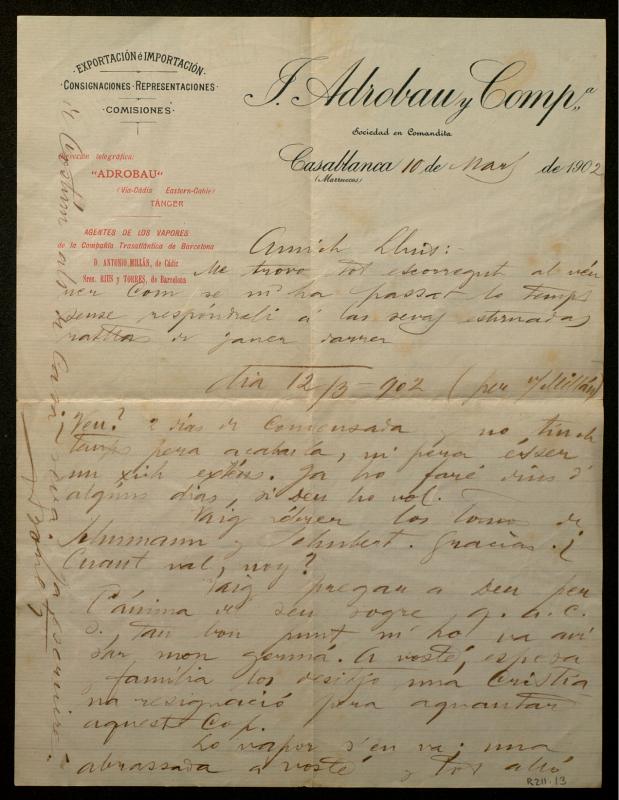 EXPORTACIÓN é IMPORTACIÓN
CONSIGNACIONES · REPRESENTACIONES
COMISIONES
J. Adrobau y Comp.ª
Sociedad en Comandita
Casablanca 10 de Mars de 1902
(Marruecos)
Dirección telegráfica:
"ADROBAU"
(Via-Cádiz Eastern-Cable)
TÁNGER
AGENTES DE LOS VAPORES
de la Compañía Trasatlántica de Barcelona
D. ANTONIO MILLÁN, de Cádiz
Sres. RIUS y TORRES, de Barcelona
Amich Lluis:
Me trovo tot escorregut al véu
rer com se m'ha passat lo temps
sense respondreli á las sevas estimadas
ratllas de janer darrer
dia 12/3-902 (per Millán)
¡Veu? 2 dias de comensada y no tinch
temps pera acabarla, ni pera ésser
un xich extens. Ja ho faré dins d'
alguns dias, si Deu ho vol.
Vaig rébrer los tomos de
Schumann y Schubert. Gracias. ¿
Cuant val, noy?
Vaig pregar a Deu per
l'ánima de seu sogre, q. a. c.
s, tan bon punt m'ho va avi
sar mon germá. A vosté, esposa
y familia los desitjo una cristia
na resignació pera aguantar
aquest cop.
Lo vapor s'en va; una
abrassada a vosté y tot alló
R211.13